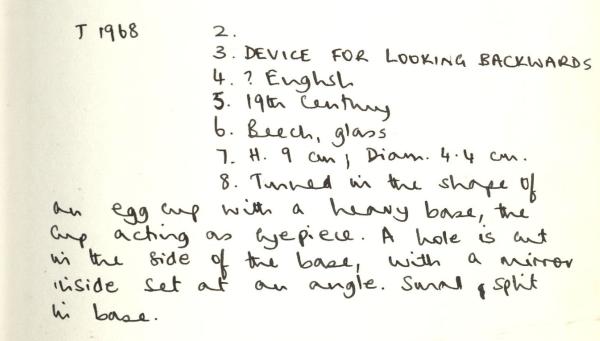 T 1968 2.
3. DEVICE FOR LOOKING BACKWARDS
4. ? English
5. 19th Century
6. Beech, glass
7. H. 9 cm; Diam. 4.4 cm.
8. Turned in the shape of
an egg cup with a heavy base, the
cup acting as eyepiece. A hole is cut
in the side of the base, with a mirror
inside set at an angle. Small split
in base.